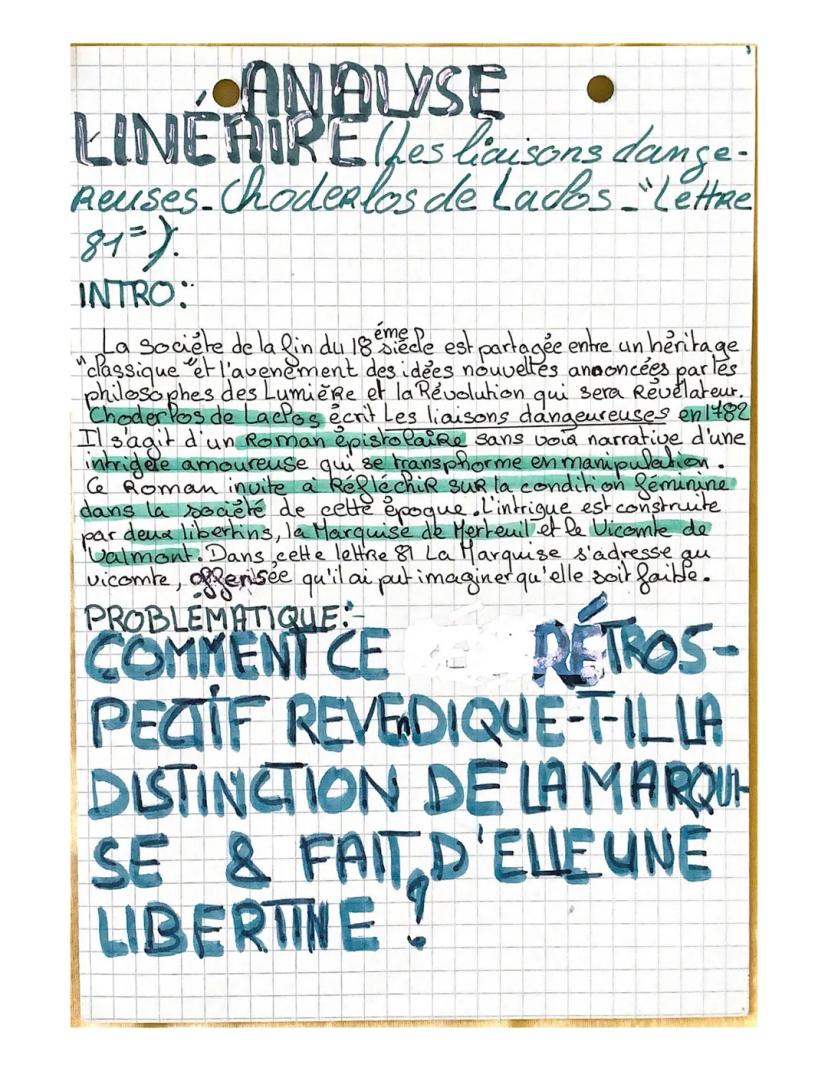 ANALYSE
LINÉAIRE (Les liaisons dange-
reuses - Choderlos de Laclos - "Lettre
81").
INTRO:
La société de la fin du 18 éme siècle est partagée entre un héritage
"classique" et l'avenement des idées nouvelles annoncées par les
philosophes des Lumière et la Révolution qui sera Révélateur.
Choderlos de Laclos écrit Les liaisons dangeureuses en 1782
Il s'agit d'un Roman épistolaire sans voix narrative d'une
intrigue amoureuse qui se transphorme en manipulation.
Ce Roman invite à Réfléchir sur la condition féminine
dans la société de cette époque. L'intrigue est construite
par deux libertins, la Marquise de Merteuil et le Vicomte de
Valmont. Dans cette lettre 81 La Marquise s'adresse au
vicomte, offensée qu'il ai put imaginer qu'elle soit faible.
PROBLÉMATIQUE:-
COMMENT CE RÉTROS-
PECTIF REVEnDIQUE-T-IL LA
DISTINCTION DE LA MARQUI-
SE & FAIT D'ELLE UNE
LIBERTINE ?